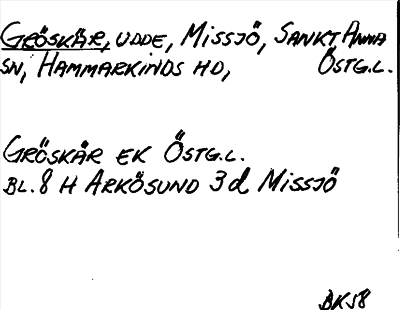 GRÖSKÄR, UDDE, MISSJÖ, SANKT ANNA
SN, HAMMARKINDS HD, ÖSTG.L.
GRÖSKÄR EK ÖSTG.L.
BL. 8 H ARKÖSUND 3d MISSJÖ
BK58